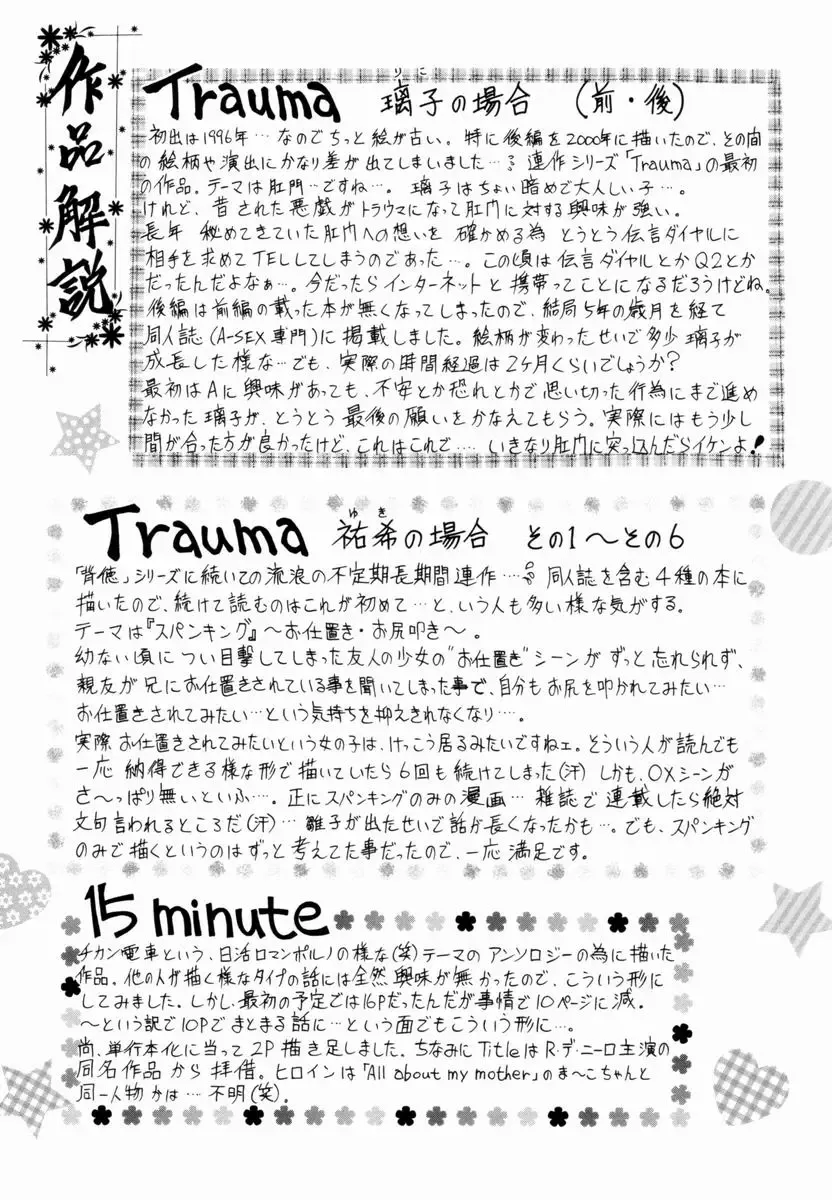 作品解説
Trauma 璃子の場合 (前・後)
りこ
初出は1996年…なのでちっと絵が古い。特に後編を2000年に描いたので、その間
の絵柄や演出にかなり差が出てしまいました…。連作シリーズ「Trauma」の最初
の作品。テーマは肛門…ですね…。璃子はちょい暗めで大人しい子…。
けれど、昔された悪戯がトラウマになって肛門に対する興味が強い。
長年 秘めてきていた肛門への想いを 確かめる為 とうとう伝言ダイヤルに
相手を求めてTELしてしまうのであった…。この頃は伝言ダイヤルとかQ2とか
だったんだよなぁ…。今だったらインターネットと携帯ってことになるだろうけどね。
後編は前編の載った本が無くなってしまったので、結局5年の歳月を経て
同人誌(A-SEX専門)に掲載しました。絵柄が変わったせいで多少 璃子が
成長した様な…でも、実際の時間経過は2ヶ月くらいでしょうか?
最初はAに興味があっても、不安とか恐れとかで思い切った行為にまで進め
なかった璃子が、とうとう最後の願いをかなえてもらう。実際にはもう少し
間が合った方が良かったけど、これはこれで…. いきなり肛門に突っ込んだらイケンよ!
Trauma 祐希の場合 その1〜その6
ゆき
「背徳」シリーズに続いての流浪の不定期長期間連作…。同人誌を含む4種の本に
描いたので、続けて読むのはこれが初めて…と、いう人も多い様な気がする。
テーマは『スパンキング』〜お仕置き・お尻叩き〜。
幼ない頃に つい目撃してしまった友人の少女の"お仕置き"シーンが ずっと忘れられず、
親友が兄にお仕置きされている事を聞いてしまった事で、自分もお尻を叩かれてみたい…
お仕置きされてみたい…という気持ちを抑えきれなくなり…。
実際 お仕置きされてみたいという女の子は、けっこう居るみたいですねェ。そういう人が読んでも
一応 納得できる様な形で描いていたら6回も続けてしまった(汗) しかも、OXシーンが
さ〜っぱり無いといふ…。正にスパンキングのみの漫画… 雑誌で連載したら絶対
文句言われるところだ(汗)… 雛子が出たせいで話が長くなったかも…。でも、スパンキング
のみで描くというのはずっと考えてた事だったので、一応 満足です。
15 minute
チカン電車という、日活ロマンポルノの様な(笑)テーマのアンソロジーの為に描いた
作品。他の人が描く様なタイプの話には全然興味が無かったので、こういう形に
してみました。しかし、最初の予定では16Pだったんだが事情で10ページに減。
〜という訳で10Pでまとまる話に…という面でもこういう形に…。
尚、単行本化に当って2P描き足しました。ちなみにTitleはR・デ・ニーロ主演の
同名作品から拝借。ヒロインは「All about my mother」のま〜こちゃんと
同一人物かは…不明(笑)。